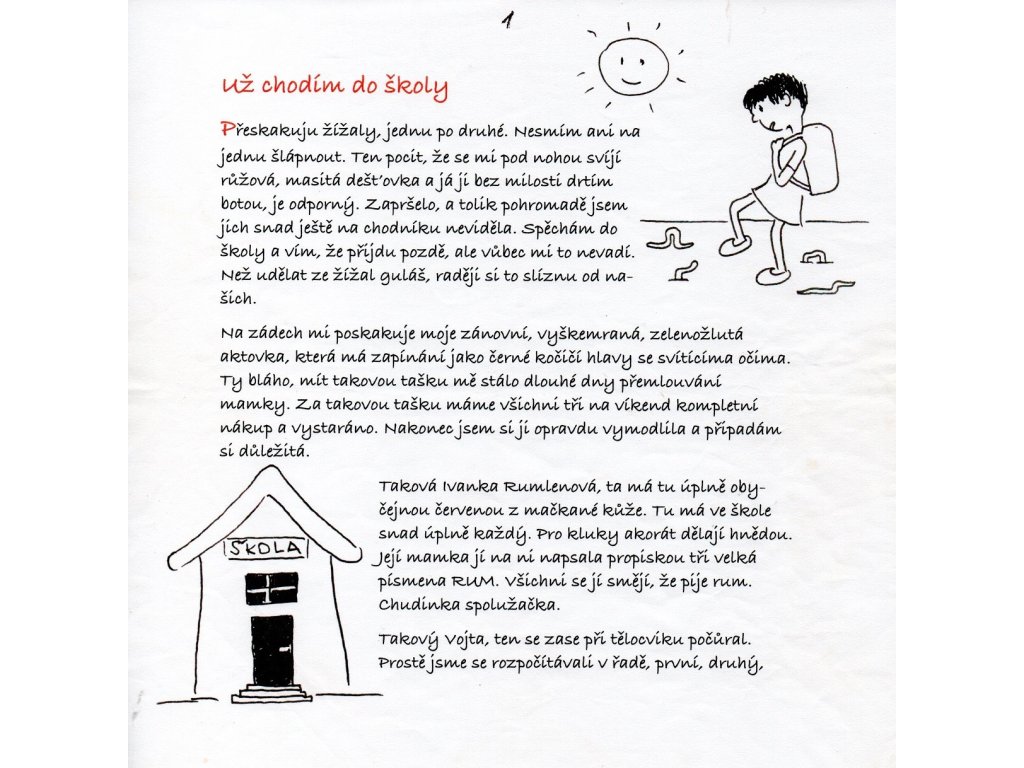 1
Už chodím do školy
Přeskakuju žížaly, jednu po druhé. Nesmím ani na
jednu šlápnout. Ten pocit, že se mi pod nohou svíjí
růžová, masitá dešťovka a já ji bez milosti drtím
botou, je odporný. Zapršelo, a tolik pohromadě jsem
jich snad ještě na chodníku neviděla. Spěchám do
školy a vím, že přijdu pozdě, ale vůbec mi to nevadí.
Než udělat ze žížal guláš, raději si to slíznu od na-
šich.
Na zádech mi poskakuje moje zánovní, vyškemraná, zelenožlutá
aktovka, která má zapínání jako černé kočičí hlavy se svítícíma očima.
Ty bláho, mít takovou tašku mě stálo dlouhé dny přemlouvání
mamky. Za takovou tašku máme všichni tři na víkend kompletní
nákup a vystaráno. Nakonec jsem si ji opravdu vymodlila a připadám
si důležitá.
ŠKOLA
Taková Ivanka Rumlenová, ta má tu úplně oby-
čejnou červenou z mačkané kůže. Tu má ve škole
snad úplně každý. Pro kluky akorát dělají hnědou.
Její mamka jí na ni napsala propiskou tři velká
písmena RUM. Všichni se jí smějí, že pije rum.
Chudinka spolužačka.
Takový Vojta, ten se zase při tělocviku počůral.
Prostě jsme se rozpočítávali v řadě, první, druhý,